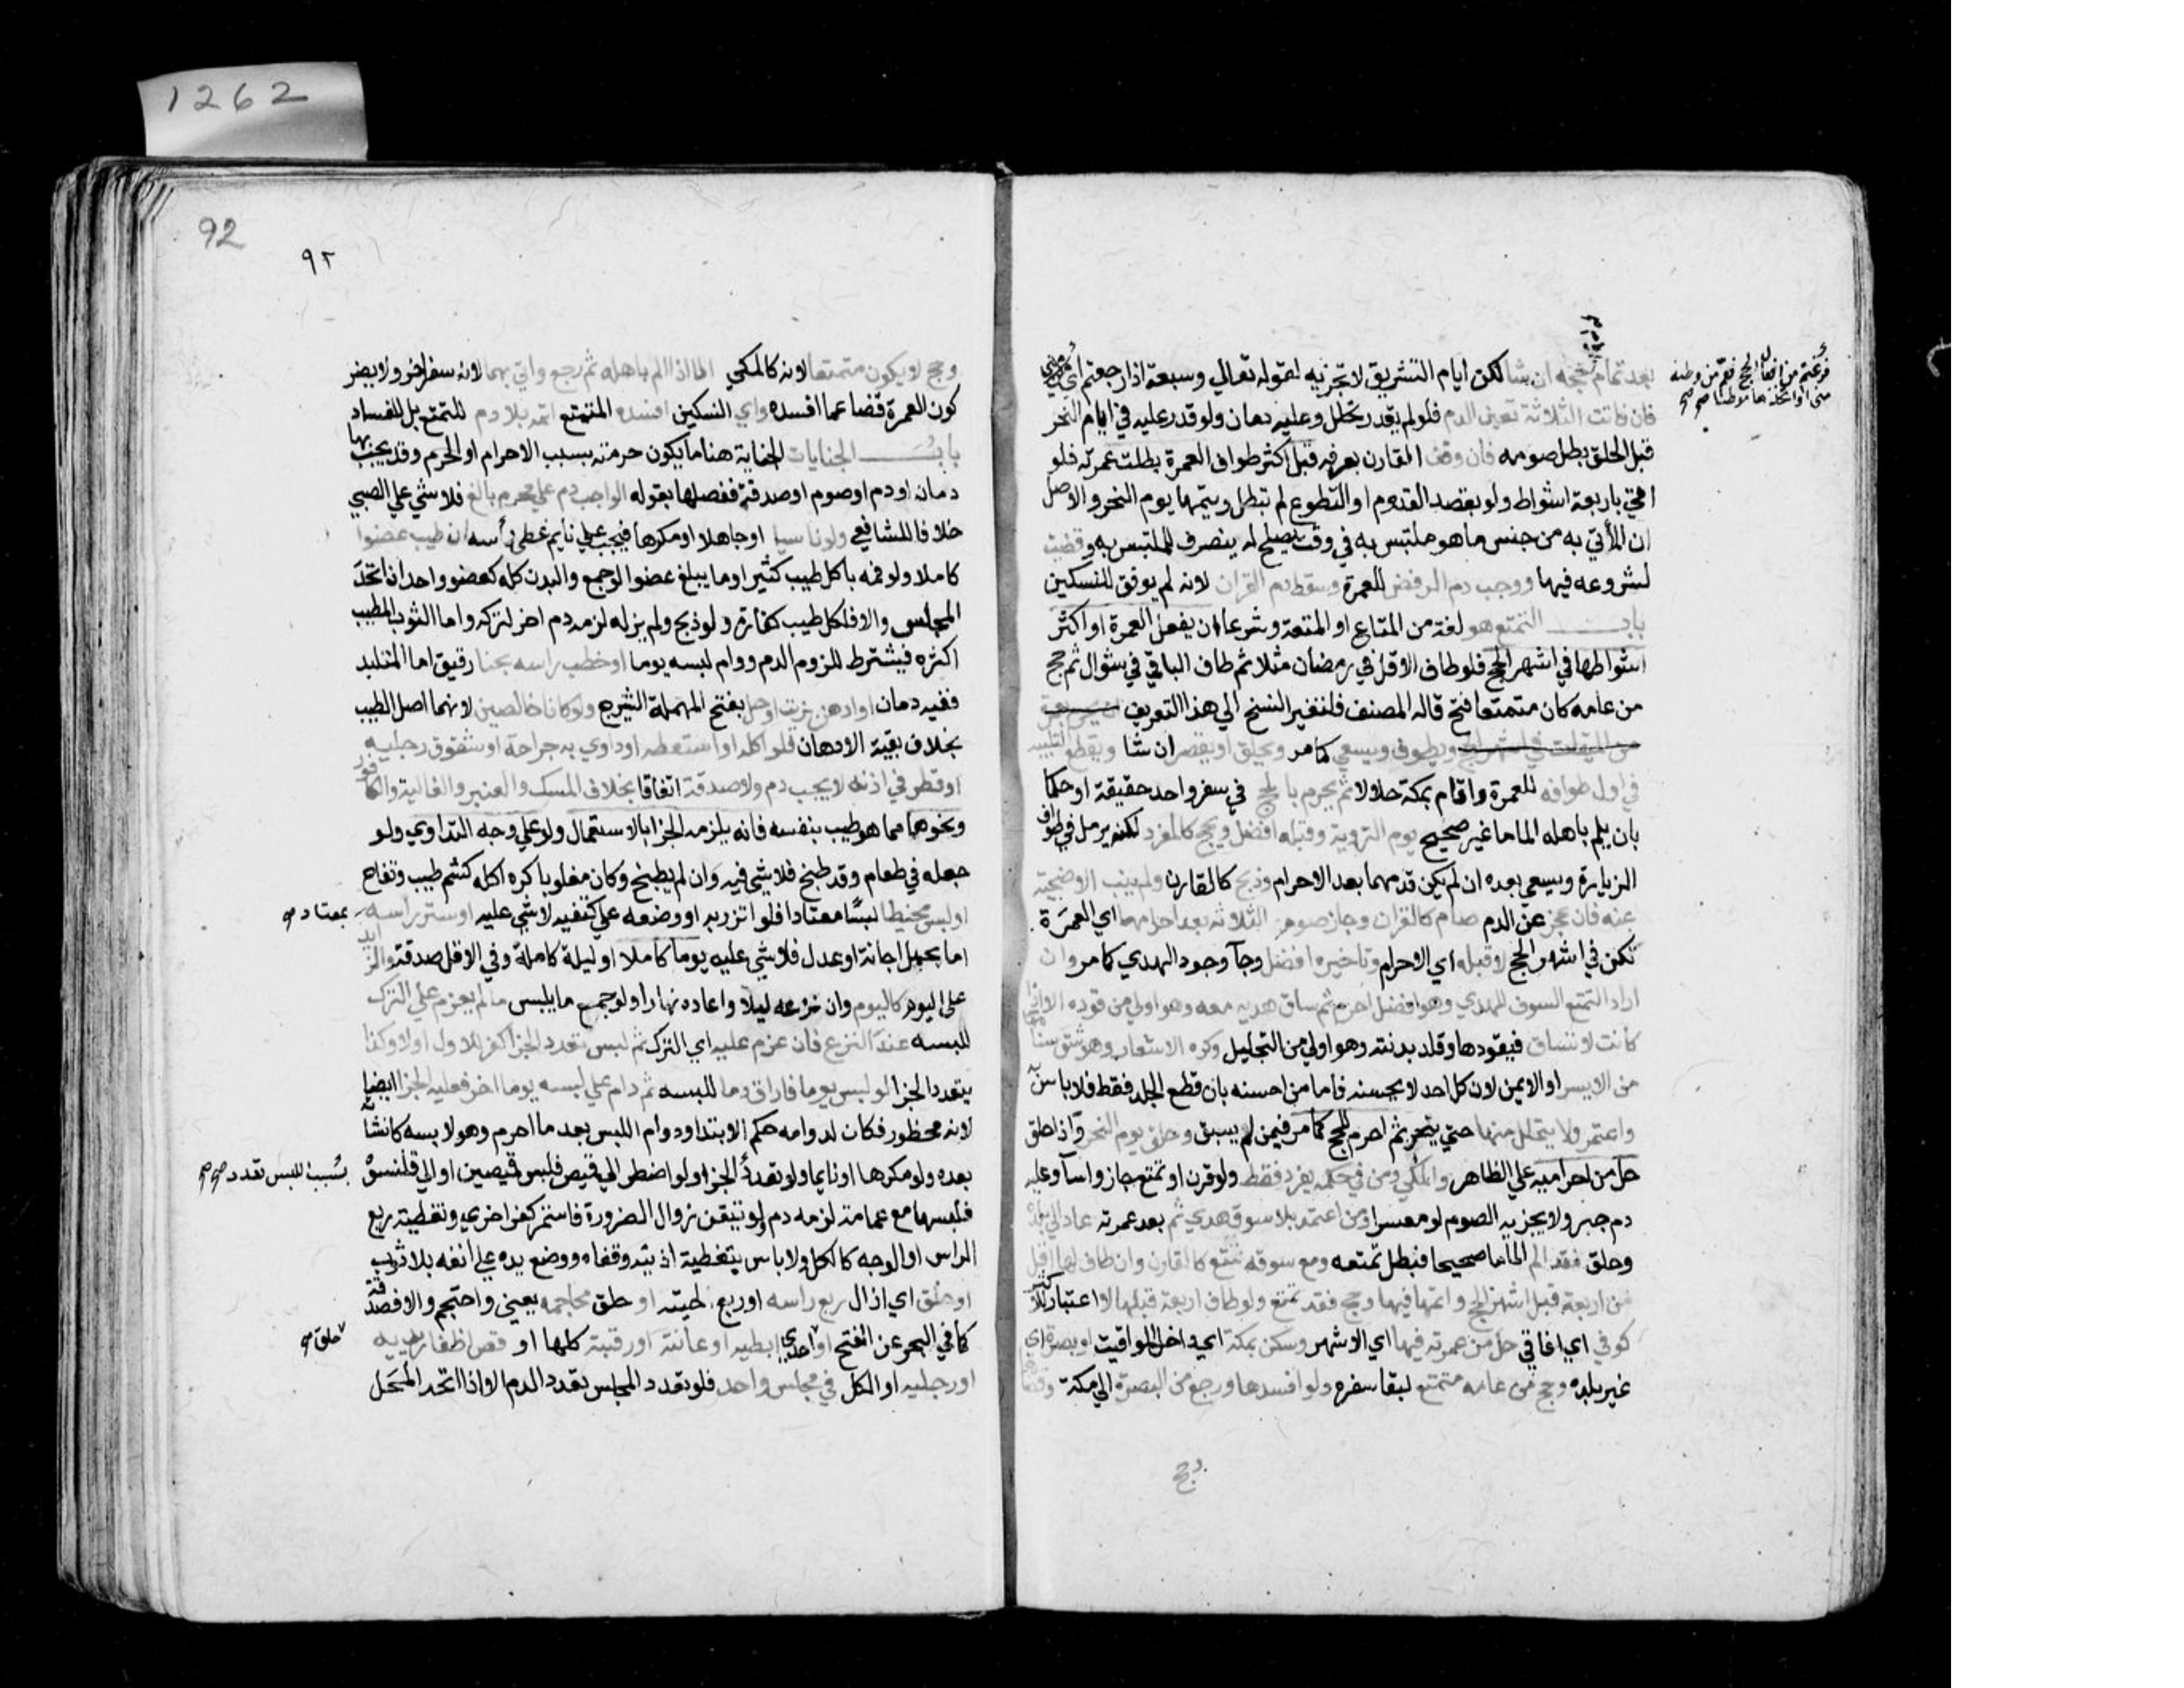 1262
فرغتم من افعال الحج فعم من وطنه
منى او اتخذها موطنا صح صح
بعد تمام حجه اين شا لكن ايام التشريق لا تجزيه لقوله تعالي وسبعة اذا رجعتم اي
فان فاتت الثلاثة تعين الدم فلو لم يقدر تحلل وعليه دمان ولو قدر عليه في ايام النحر
قبل الحلق بطل صومه فان وقف القارن بعرفه قبل اكثر طواف العمرة بطلت عمرته فلو
اتي باربعة اشواط ولو بقصد القدوم او التطوع لم تبطل ويتمها يوم النحر والاصل
ان المأتي به من جنس ما هو ملتبس به في وقت يصلح له ينصرف للملتبس به وقضيت
لشروعه فيها ووجب دم الرفض للعمرة وسقط دم القران لانه لم يوفق للنسكين
باب التمتع هو لغة من المتاع او المتعة وشرعا ان يفعل العمرة او اكثر
اشواطها في اشهر الحج فلو طاف الاقل في رمضان مثلا ثم طاف الباقي في شوال ثم حج
من عامه كان متمتعا فتح قاله المصنف فلتغير النسخ الي هذا التعريف
من الميقات في اشهر الحج ويطوف ويسعي كما مر ويحلق او يقصر ان شا ويقطع التلبيه
في اول طوافه للعمرة واقام بمكة حلالا ثم يحرم بالحج في سفر واحد حقيقة او حكما
بان يلم باهله الماما غير صحيح يوم التروية وقبله افضل ويحج كالمفرد لكنه يرمل في طواف
الزيارة ويسعي بعده ان لم يكن قدمهما بعد الاحرام وذبح كالقارن ولم ينب الاضحية
عنه فان عجز عن الدم صام كالقران وجاز صوم الثلاثة بعد احرامها اي العمرة
لكن في اشهر الحج لا قبله اي الاحرام وتاخيره افضل رجآ وجود الهدي كما مر وان
اراد التمتع السوق للهدي وهو افضل احرم ثم ساق هديه معه وهو اولي من قوده الا اذا
كانت لا تنساق فيقودها وقلد بدنته وهو اولي من التجليل وكره الاشعار وهو شق سنامها
من الايسر او الايمن لان كل احد لا يحسنه فاما من احسنه بان قطع الجلد فقط فلا باس به
واعتمر ولا يتحلل منها حتي ينحر ثم احرم للحج كما مر فيمن لم يسق وحلق يوم النحر واذا حلق
حل من احراميه علي الظاهر والمكي ومن في حكمه يفرد فقط ولو قرن او تمتع جاز واسآ وعليه
دم جبر ولا يجزيه الصوم لو معسرا ومن اعتمر بلا سوق هدي ثم بعد عمرته عاد الي بلده
وحلق فقد الم الماما صحيحا فبطل تمتعه ومع سوقه تمتع كالقارن وان طاف لها اقل
من اربعة قبل اشهر الحج واتمها فيها وحج فقد تمتع ولو طاف اربعة قبلها لا اعتبارا للاكثر
كوفي اي افاقي حل من عمرته فيها اي الاشهر وسكن بمكة اي داخل المواقيت او بصرة اي
غير بلده وحج من عامه متمتع لبقا سفره ولو افسدها ورجع من البصرة الي مكة وقضاها
وحج
92
٩٢
وحج لا يكون متمتعا لانه كالمكي الا اذا الم باهله ثم رجع واتي بهما لانه سفر اخر ولا يضر
كون العمرة قضا عما افسده واي النسكين افسده المتمتع اتمه بلا دم للتمتع بل للفساد
باب الجنايات الجناية هنا ما يكون حرمته بسبب الاحرام او الحرم وقد يجب بها
دمان او دم او صوم او صدقة ففصلها بقوله الواجب دم علي محرم بالغ فلا شي علي الصبي
خلافا للشافعي ولو ناسيا او جاهلا او مكرها فيجب علي نايم غطي رأسه ان طيب عضوا
كاملا ولو فمه باكل طيب كثير او ما يبلغ عضوا لو جمع والبدن كله كعضو واحد ان اتحد
المجلس والا فلكل طيب كفارة ولو ذبح ولم يزله لزمه دم اخر لتركه واما الثوب المطيب
اكثره فيشترط للزوم الدم دوام لبسه يوما او خضب راسه بحنا رقيق اما المتلبد
ففيه دمان او ادهن بزيت او حل بفتح المهملة الشيرج ولو كانا خالصين لانهما اصل الطيب
بخلاف بقية الادهان فلو اكله او استعطه او داوي به جراحة او شقوق رجليه
او قطر في اذنه لا يجب دم ولا صدقة اتفاقا بخلاف المسك والعنبر والغالية والكافور
ونحوها مما هو طيب بنفسه فانه يلزمه الجزا بالاستعمال ولو علي وجه التداوي ولو
جعله في طعام وقد طبخ فلا شي فيه وان لم يطبخ وكان مغلوبا كره اكله كشم طيب وتفاح
او لبس مخيطا لبسًا معتادا فلو اتزر به او وضعه علي كتفيه لا شي عليه او ستر راسه
بمعتاد صح
اما بحمل اجانة او عدل فلا شي عليه يوما كاملا او ليلة كاملة وفي الاقل صدقة والزايد
علي اليوم كاليوم وان نزعه ليلا واعاده نهارا ولو جمع ما يلبس ما لم يعزم علي الترك
للبسه عند النزع فان عزم عليه اي الترك ثم لبس تعدد الجزا كفر للاول او لا وكذا
يتعدد الجزا لو لبس يوما فاراق دما للبسه ثم دام علي لبسه يوما اخر فعليه الجزا ايضا
لانه محظور فكان لدوامه حكم الابتدا ودوام اللبس بعد ما احرم وهو لابسه كانشائه
بعده ولو مكرها او نايما ولو تعدد الجزا ولو اضطر الي قميص فلبس قميصين او الي قلنسوة
بسبب اللبس تعدد صح صح
فلبسها مع عمامة لزمه دم ولو تيقن زوال الضرورة فاستمر كفر اخري وتغطية ربع
الراس او الوجه كالكل ولا باس بتغطية اذنيه وقفاه ووضع يديه علي انفه بلا ثوب
او حلق اي ازال ربع راسه او ربع لحيته او حلق محاجمه يعني واحتجم والا فصدقة
كما في البحر عن الفتح او احدي ابطيه او عانته او رقبته كلها او قص اظفار يديه
حلق صح
او رجليه او الكل في مجلس واحد فلو تعدد المجلس تعدد الدم الا اذا اتحد المحل